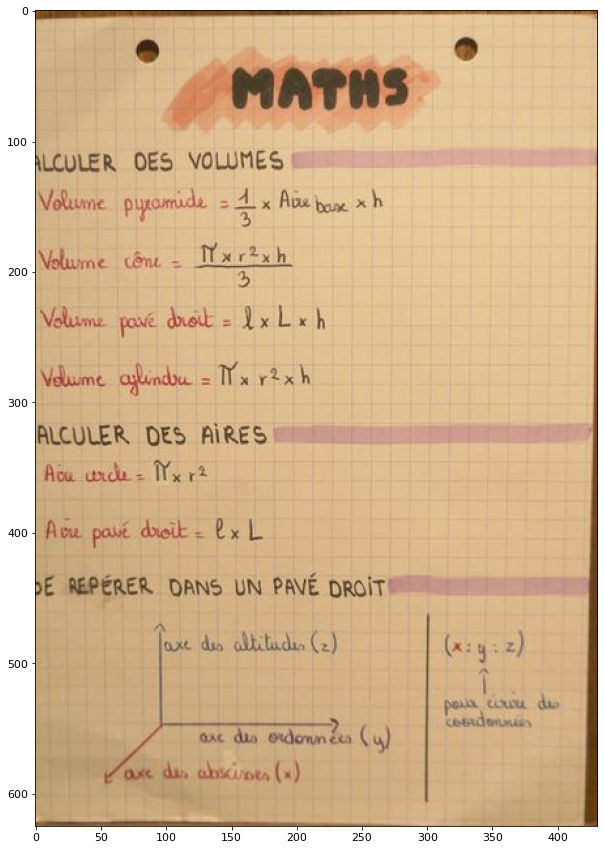 MATHS
ALCULER DES VOLUMES
Volume pyramide = 1/3 x Aire base x h
Volume cône = π x r² x h / 3
Volume pavé droit = l x L x h
Volume cylindre = π x r² x h
ALCULER DES AIRES
Aire cercle = π x r²
Aire pavé droit = l x L
SE REPÉRER DANS UN PAVÉ DROIT
axe des altitudes (z)
axe des ordonnées (y)
axe des abscisses (x)
(x : y : z)
pour écrire des
coordonnées
0
100
200
300
400
500
600
0 50 100 150 200 250 300 350 400